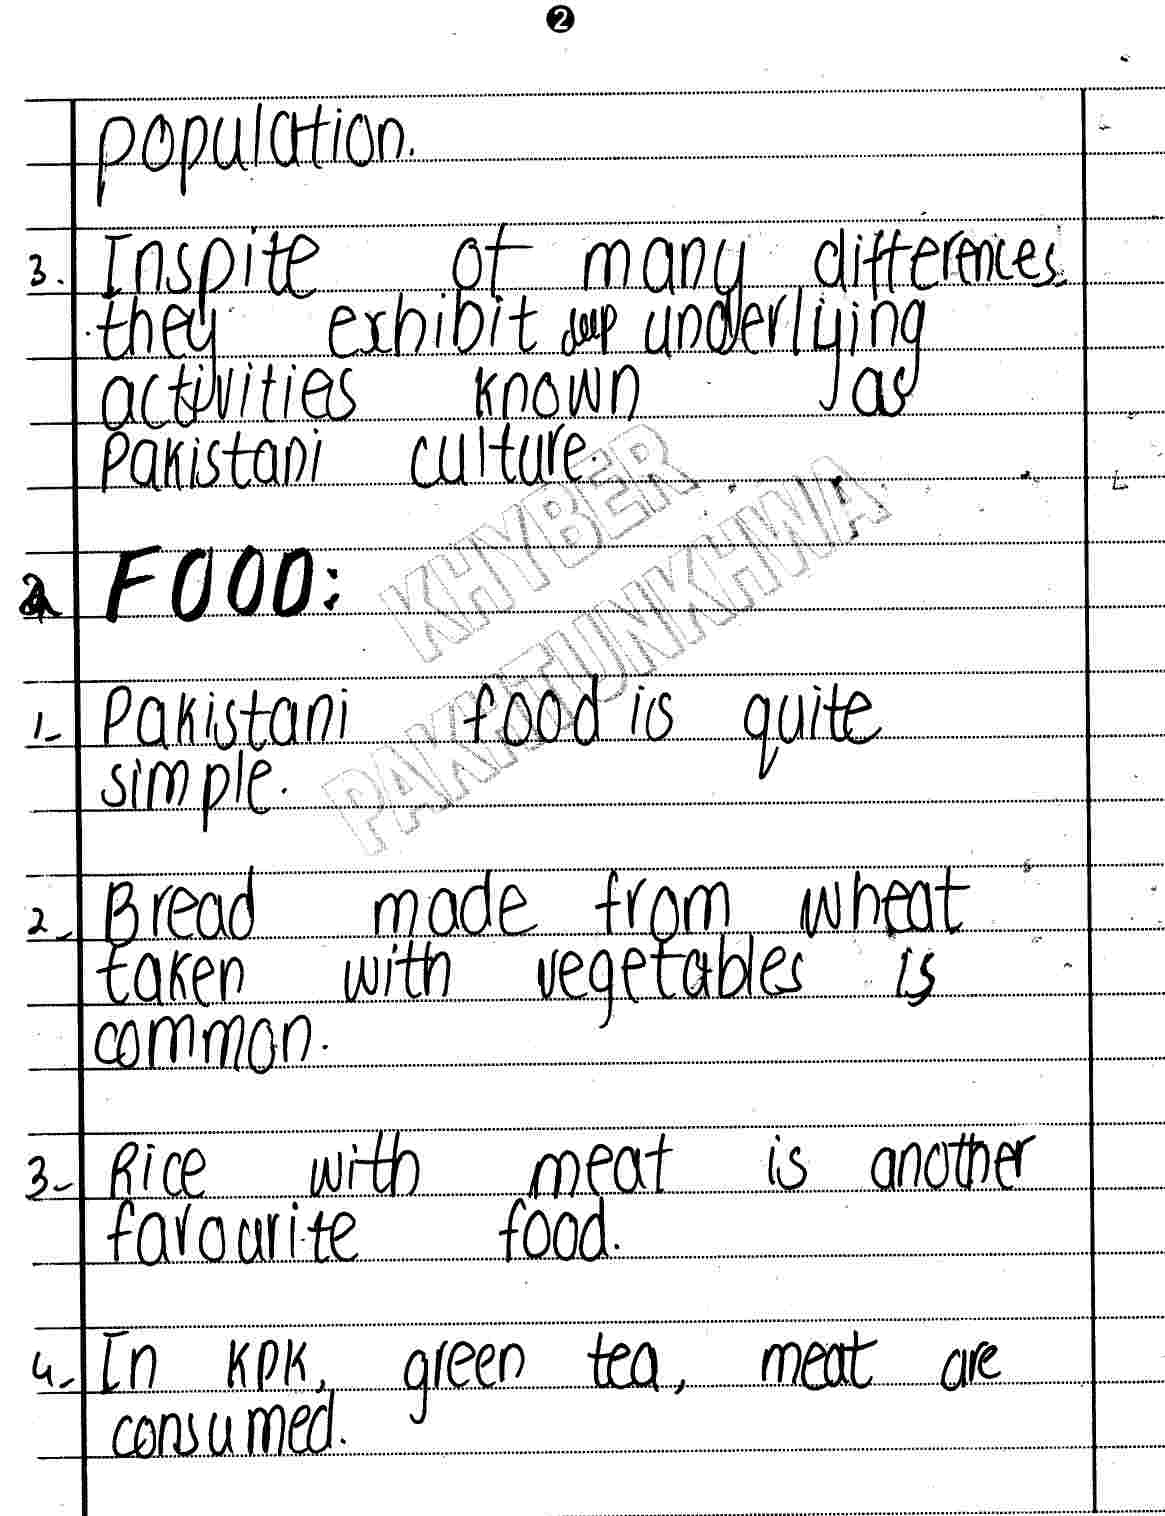 2
population.
3. Inspite of many differences
they exhibit deep underlying
activities known as
Pakistani culture.
KHYBER
PAKHTUNKHWA
FOOD:
1- Pakistani food is quite
simple.
2- Bread made from wheat
taken with vegetables is
common.
3- Rice with meat is another
favourite food.
4- In KPK, green tea, meat are
consumed.